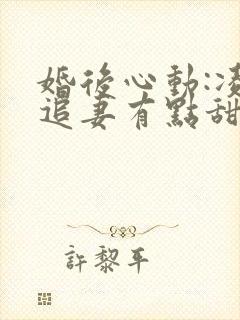 婚後心動:凌
追妻有點甜
許黎平